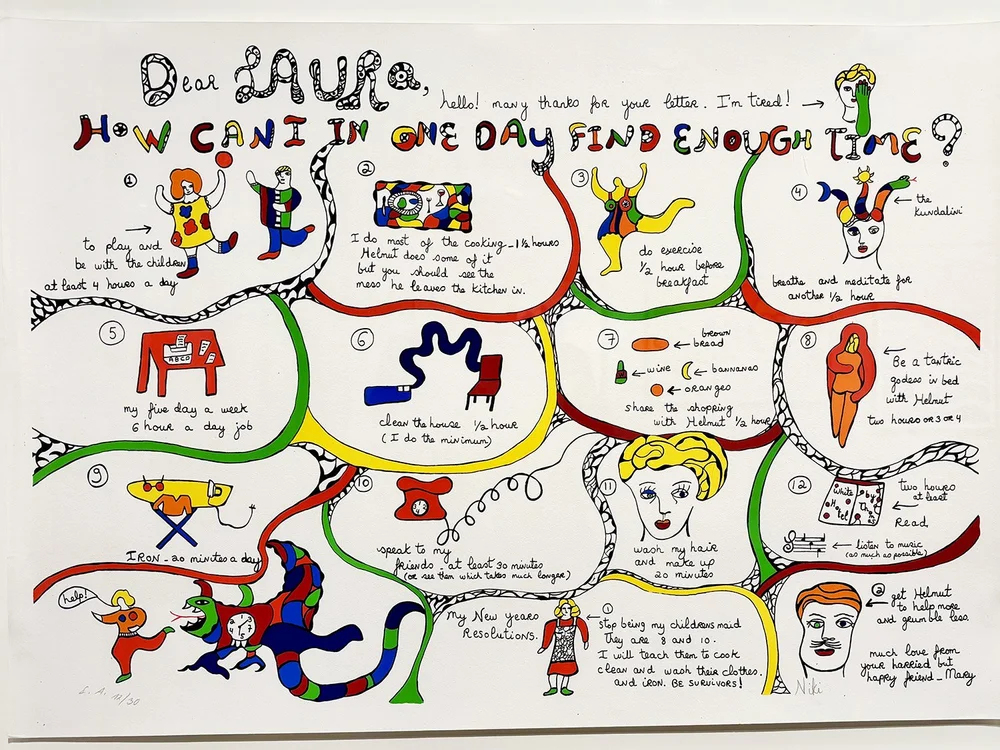 Dear LAURA,
hello! many thanks for your letter. I'm tired!
HOW CAN I IN ONE DAY FIND ENOUGH TIME?
1
to play and
be with the children
at least 4 hours a day
2
I do most of the cooking_1½ hours
Helmut does some of it
but you should see the
mess he leaves the kitchen in.
3
do exercise
½ hour before
breakfast
4
the
Kundalini
breathe and meditate for
another ½ hour
5
ABCD
my five day a week
6 hour a day job
6
clean the house ½ hour
(I do the minimum)
7
brown
bread
wine
bannanas
oranges
share the shopping
with Helmut ½ hour
8
Be a tantric
godess in bed
with Helmut
two hours or 3 or 4
9
IRON_20 minutes a day
10
speak to my
friends_at least 30 minutes
(or see them which takes much longer)
11
wash my hair
and make up
20 minutes
12
White
Hotel
by
Thomas
two hours
at least
Read
listen to music
(as much as possible)
help!
My New Years
Resolutions.
1
Stop being my childrens maid
They are 8 and 10.
I will teach them to cook
clean and wash their clothes
and iron. BE SURVIVORS!
2
get Helmut
to help more
and grumble less.
much love from
your harried but
happy friend_Mary
E.A. 17/30
Niki